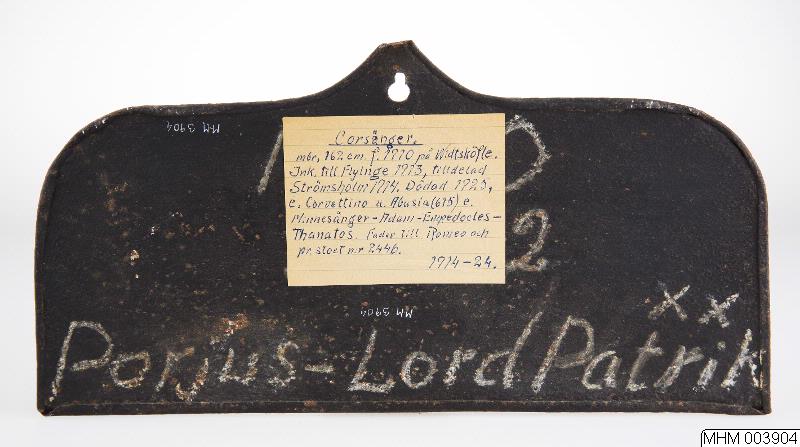 MM 3904
Corsånger.
mbr, 162 cm. f. 1910 på Widtsköfle.
Ink. till Flyinge 1913, tilldelad
Strömsholm 1914. Dödad 1925,
e. Corvettino u. Abusia (615) e.
Minnesånger-Adam-Empedocles-
Thanatos. Fader till Romeo och
pr. stoet nr 2446.
1914-24.
2
MM 3904
x x
Porjus-Lord Patrik
MHM 003904